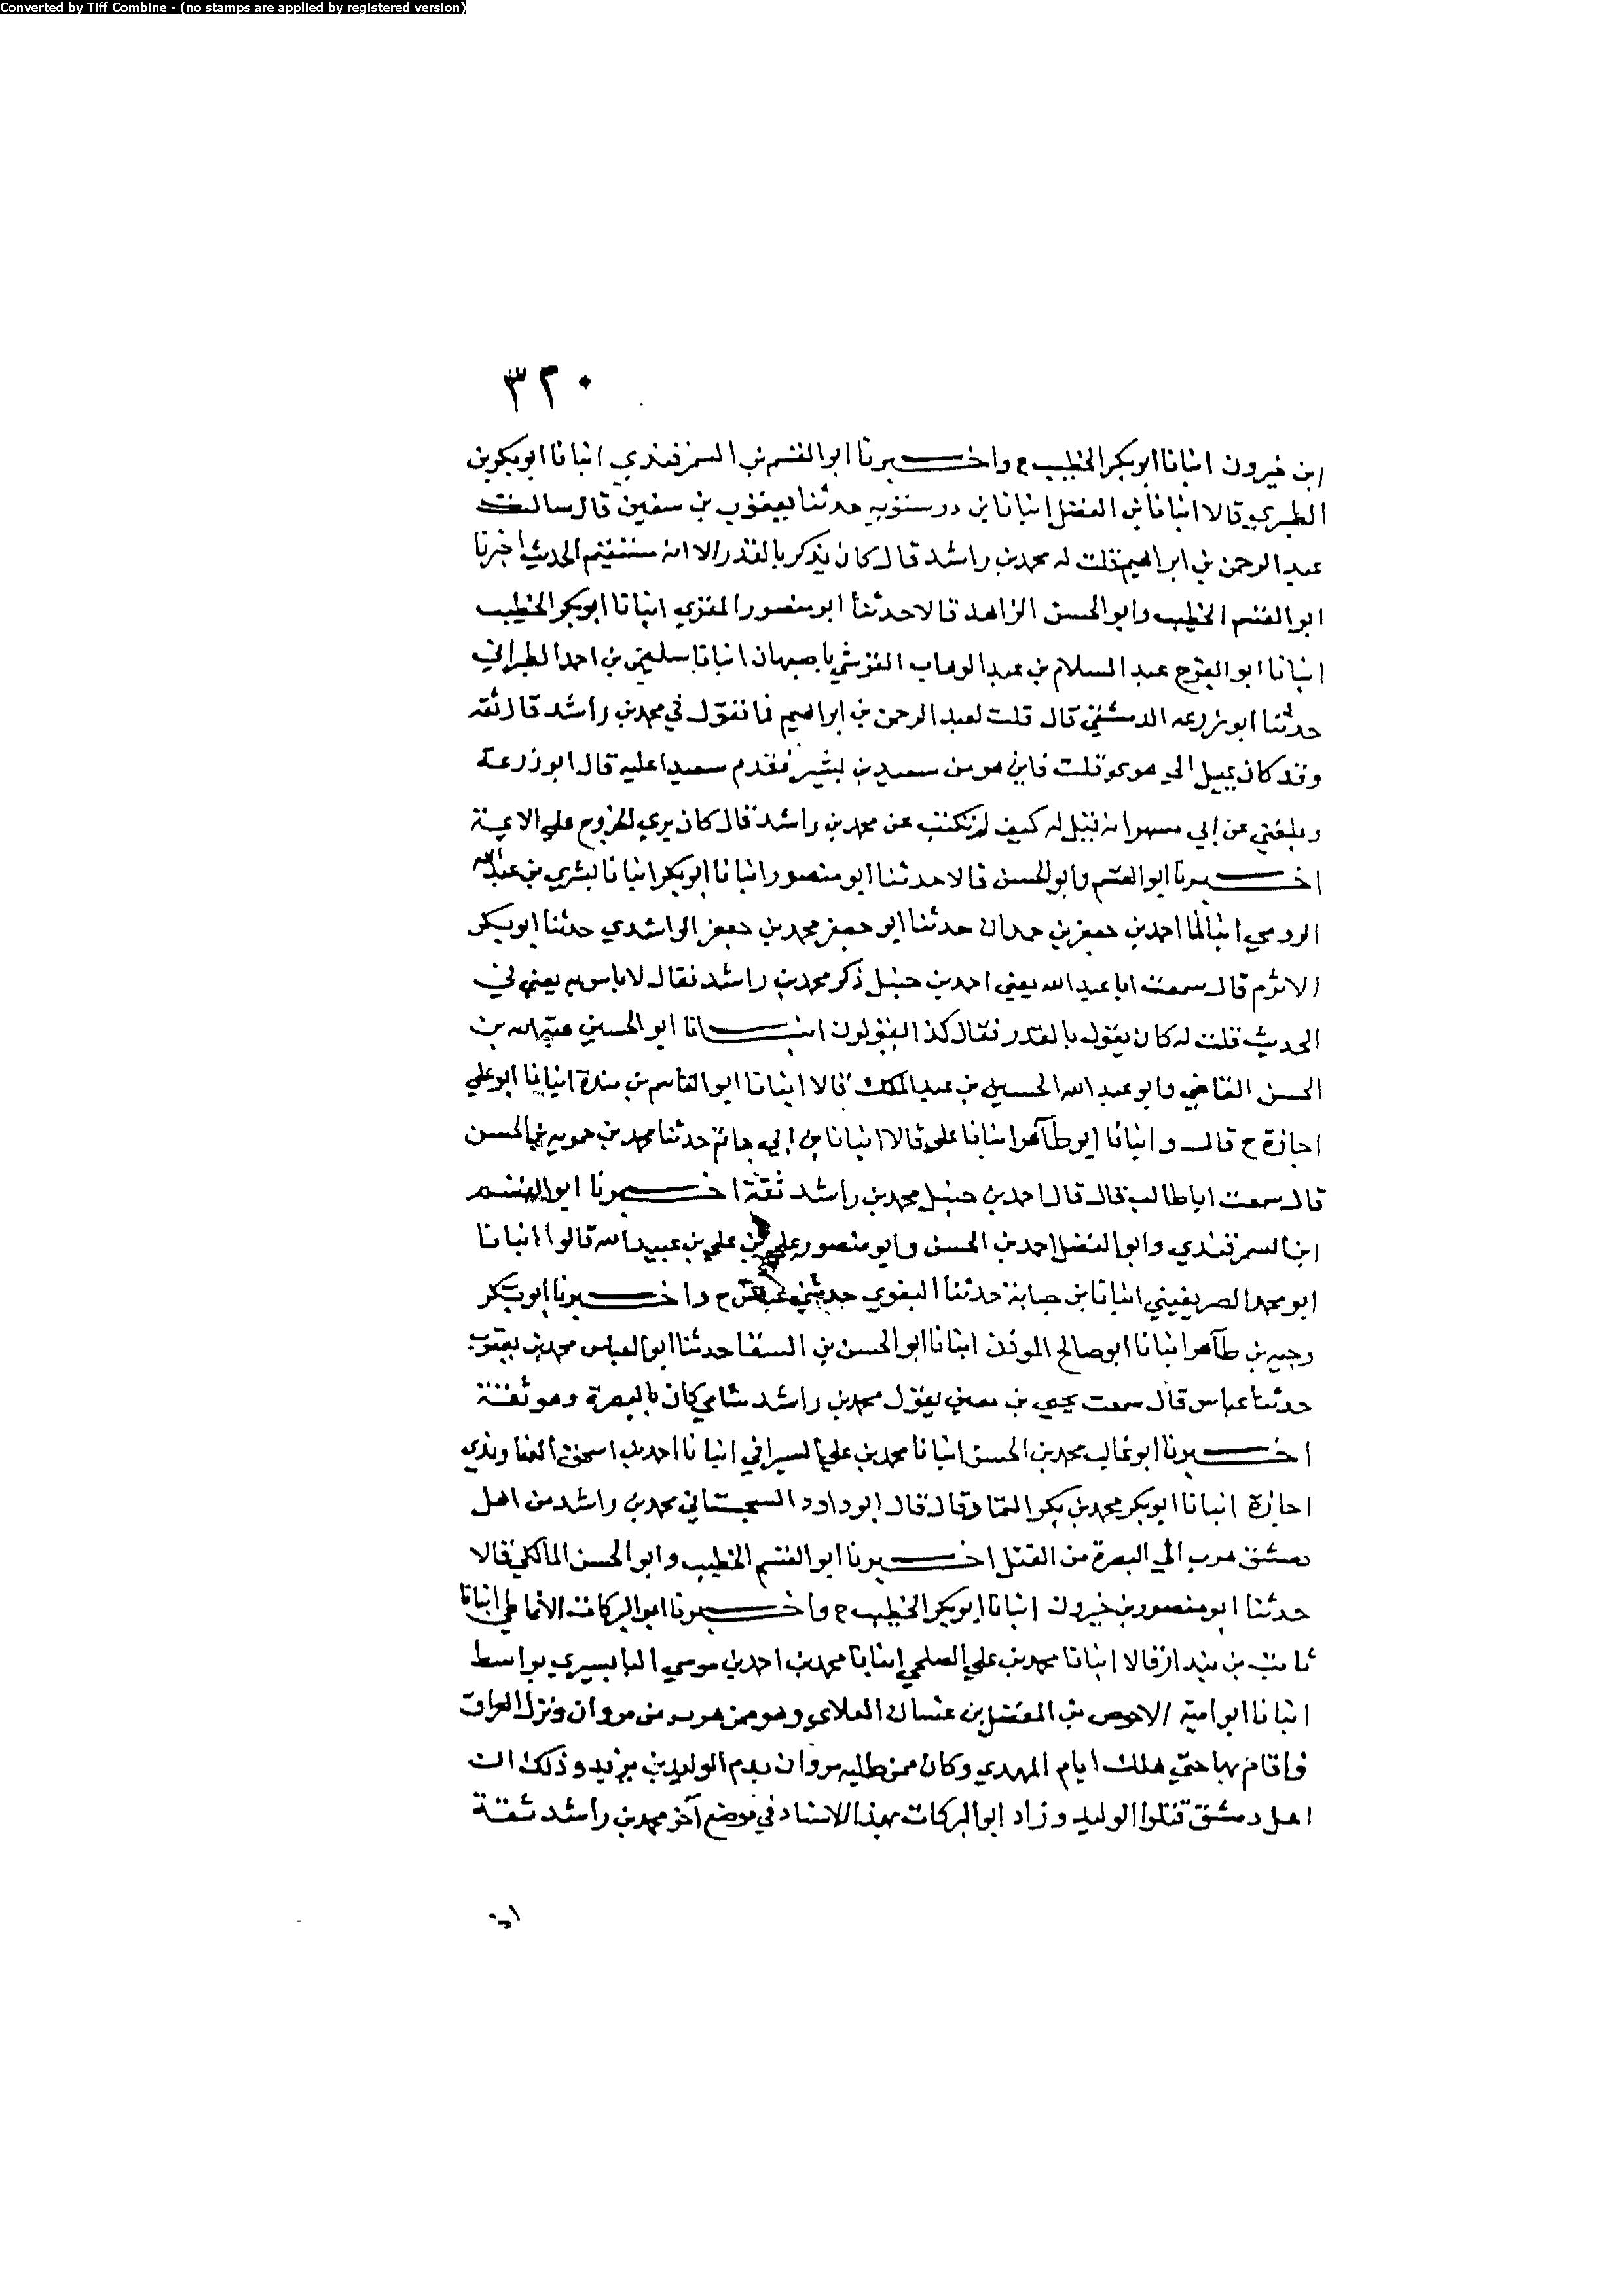 Converted by Tiff Combine - (no stamps are applied by registered version)
٣٢٠
ابن خيرون انبانا ابو بكر الخطيب ح واخبرنا ابو القسم بن السمرقندي انبانا ابو بكر بن
الطبري قالا انبانا بن الفضل انبانا بن درستويه حدثنا يعقوب بن سفين قال سالت
عبد الرحمن بن ابراهيم قلت له محمد بن راشد قال كان يذكر بالقدر الا انه مستقيم الحديث اخبرنا
ابو القسم الخطيب وابو الحسن الزاهد قالا حدثنا ابو منصور المقري انبانا ابو بكر الخطيب
انبانا ابو الفرج عبد السلام بن عبد الوهاب القرشي باصبهان انبانا سليمن بن احمد الطبراني
حدثنا ابو زرعه الدمشقي قال قلت لعبد الرحمن بن ابراهيم فما تقول في محمد بن راشد قال ثقه
وقد كان يميل الى هوى قلت فاين هو من سعيد بن بشير فقدم سعيدا عليه قال ابو زرعة
وبلغني عن ابي مسهر انه قيل له كيف لم تكتب عن محمد بن راشد قال كان يرى الخروج على الايمة
اخبرنا ابو القسم وابو الحسن قالا حدثنا ابو منصور انبانا ابو بكر انبانا بشري بن عبد الله
الرومي انبانا احمد بن جعفر بن حمدان حدثنا ابو جعفر محمد بن جعفر الراشدي حدثنا ابو بكر
الاثرم قال سمعت ابا عبد الله يعني احمد بن حنبل ذكر محمد بن راشد فقال لا باس به يعني في
الحديث قلت له كان يقول بالقدر فقال كذا يقولون انبانا ابو الحسين هبة الله بن
الحسن القاضي وابو عبد الله الحسين بن عبد الملك قالا انبانا ابو القاسم بن مندة انبانا ابو علي
اجازة ح قال وانبانا ابو طاهر انبانا علي قالا انبانا بن ابي حاتم حدثنا محمد بن حمويه بن الحسن
قال سمعت ابا طالب قال قال احمد بن حنبل محمد بن راشد ثقة اخبرنا ابو القسم
ابن السمرقندي وابو الفضل احمد بن الحسن وابو منصور علي بن علي بن عبيد الله قالوا انبانا
ابو محمد الصريفيني انبانا بن حبابة حدثنا البغوي حدثني عباس ح واخبرنا ابو بكر
وجيه بن طاهر انبانا ابو صالح الموذن انبانا ابو الحسن بن السقا حدثنا ابو العباس محمد بن يعقوب
حدثنا عباس قال سمعت يحيى بن معين يقول محمد بن راشد شامي كان بالبصرة وهو ثقة
اخبرنا ابو غالب محمد بن الحسن انبانا محمد بن علي السيرافي انبانا احمد بن اسحق النهاوندي
اجازة انبانا ابو بكر محمد بن بكر التمار قال قال ابو داود السجستاني محمد بن راشد من اهل
دمشق هرب الى البصرة من القتل اخبرنا ابو القسم الخطيب وابو الحسن المالكي قالا
حدثنا ابو منصور بن خيرون انبانا ابو بكر الخطيب ح واخبرنا ابو البركات الانماطي انبانا
ثابت بن بندار قالا انبانا محمد بن علي الصلحي انبانا محمد بن احمد بن موسى البابسيري بواسط
انبانا ابو امية الاحوص بن المفضل بن غسان الغلابي وهو ممن هرب من مروان ونزل العراق
فاقام بها حتى هلك ايام المهدي وكان ممن طلبه مروان بدم الوليد بن يزيد وذلك ان
اهل دمشق قتلوا الوليد وزاد ابو البركات بهذا الاسناد في موضع آخر محمد بن راشد ثقة